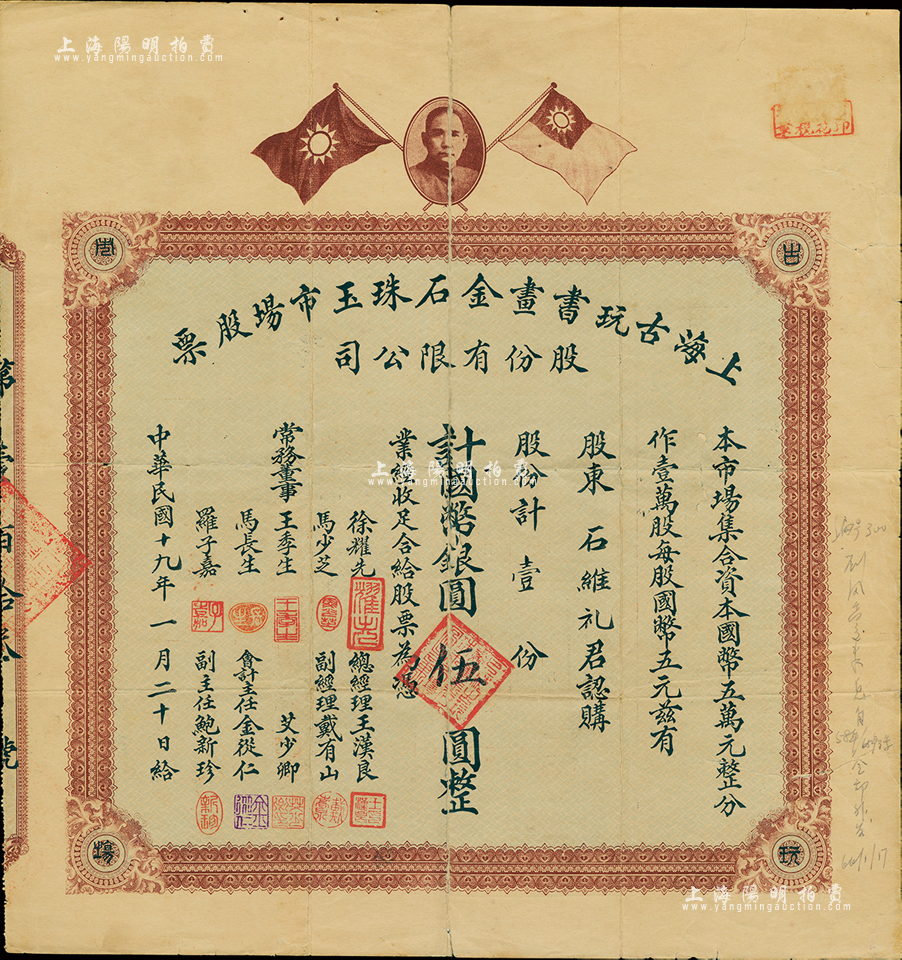 上海陽明拍賣
www.yangmingauction.com
上海古玩書畫金石珠玉市場股票
股份有限公司
本市場集合資本國幣五萬元整分
作壹萬股每股國幣五元茲有
股東 石維礼君認購
股份計壹份
計國幣銀圓伍圓整
業經收足合給股票為憑
徐耀先 總經理王漢良
馬少芝 副經理戴有山
常務董事 王季生 艾少卿
馬長生 會計主任金從仁
羅子嘉 副主任鮑新珍
中華民國十九年一月二十日給
古
玩
市
場
上海陽明拍賣
www.yangmingauction.com
上海陽明拍賣
www.yangmingauction.com